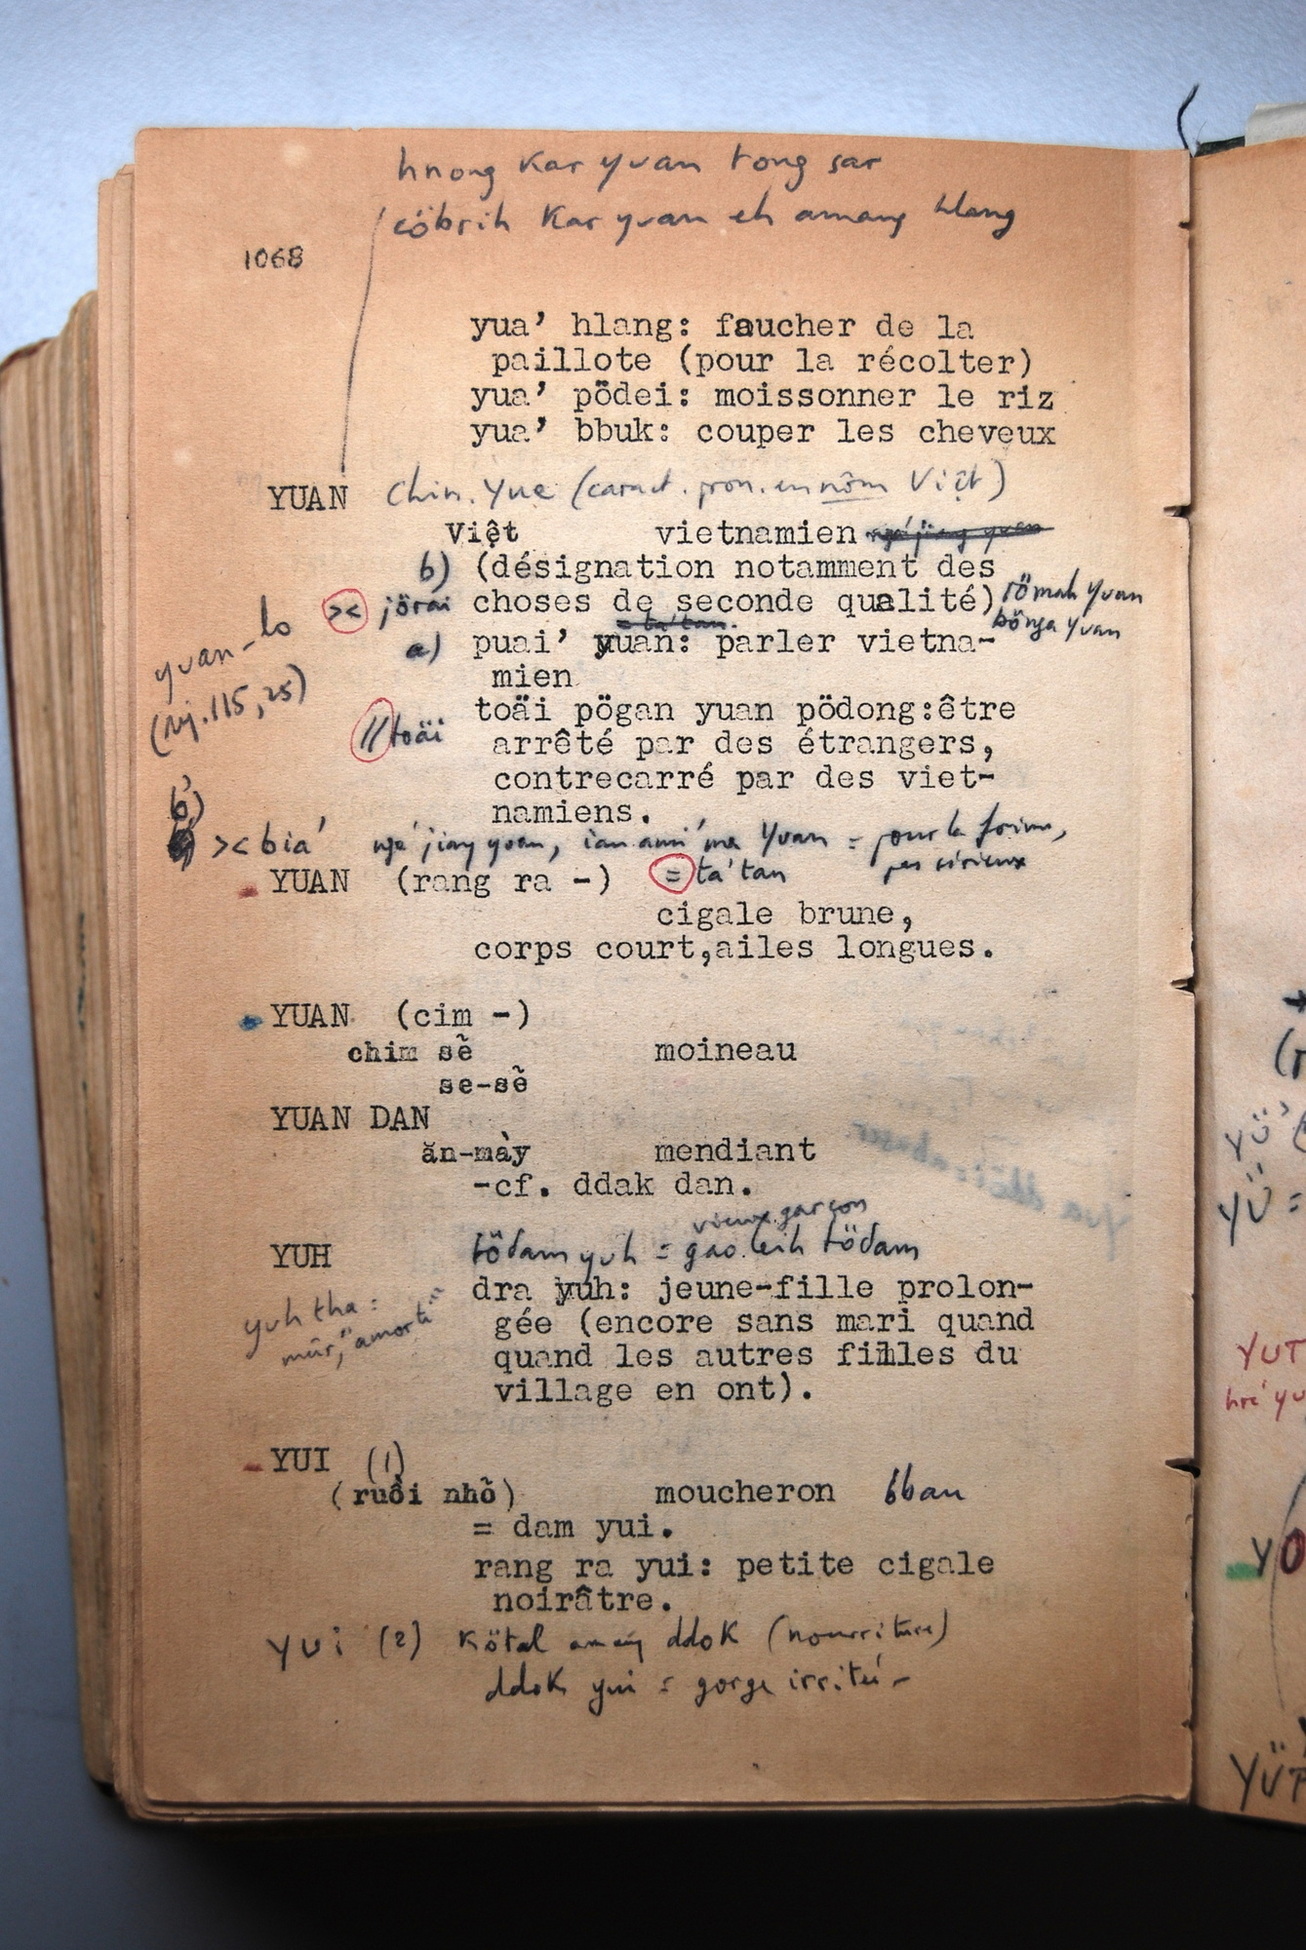 hnong Kar yuan tong sar
cöbrih Kar yuan eh amang hlang
1068
yua’ hlang: faucher de la
paillote (pour la récolter)
yua’ pödei: moissonner le riz
yua’ bbuk: couper les cheveux
YUAN Chin. Yue (caract. pron. en nôm Việt)
Việt vietnamien
b) (désignation notamment des
>< jörai choses de seconde qualité) römah yuan
bönga yuan
yuan-lo
a) puai’ yuan: parler vietna-
mien
115, 25)
// toäi toäi pögan yuan pödong:être
arrêté par des étrangers,
contrecarré par des viet-
namiens.
b)
>< bia’ yuan, Yuan = pour la forme,
pas sérieux
YUAN (rang ra -) = ta’tan
cigale brune,
corps court,ailes longues.
YUAN (cim -)
chim sẽ moineau
se-sẽ
YUAN DAN
ăn-mày mendiant
-cf. ddak dan.
vieux garçon
YUH tödam yuh = gao teih tödam
dra yuh: jeune-fille prolon-
yuh tha :
mûr, "amorti"
gée (encore sans mari quand
quand les autres filles du
village en ont).
YUI (1)
(ruồi nhỏ) moucheron bban
= dam yui.
rang ra yui: petite cigale
noirâtre.
yui (2) Kötal amăng ddoK (nourriture)
ddoK yui = gorge irritée -
YUT